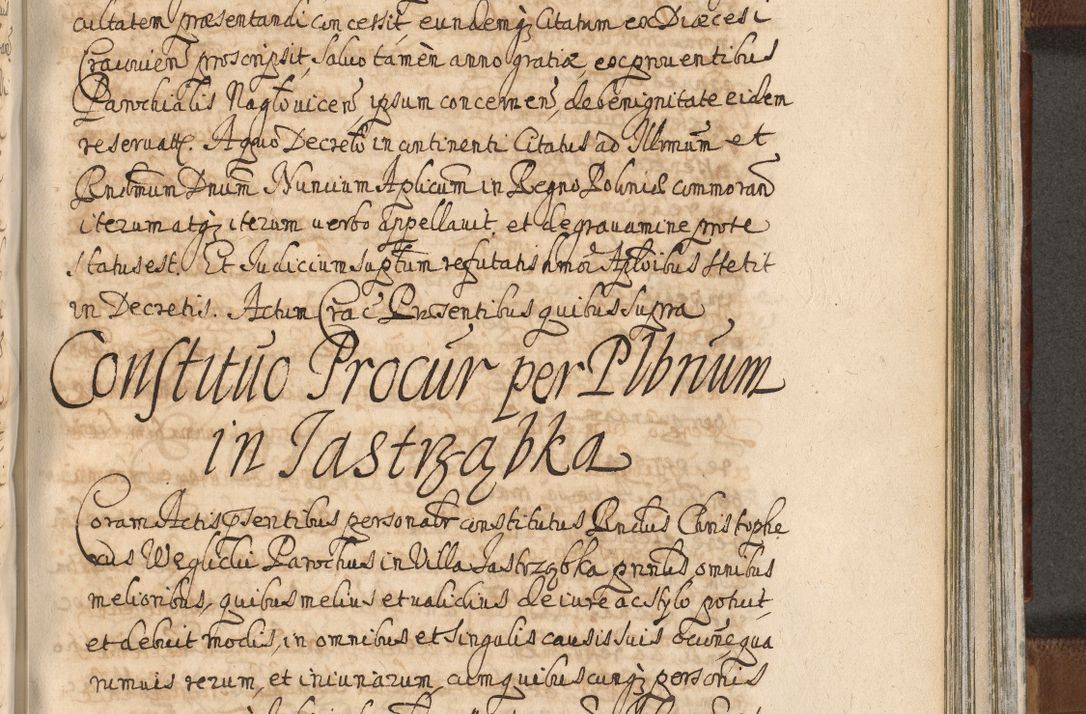 cultatem præsentandi concessit, eundemq; Citatum ex Diæcesi
Cracovien̄ proscripsit, salvo tamèn anno gratiæ, ex proventibus
Parochialis Nagłovicen̄, ipsum concernen̄, de benignitate eidem
reservatt. A quo Decreto in continenti Citatus ad Illrmum̄ et
Rndmūm Dnūm Nuncium Aplicūm in Regno Poloniæ commoran̄
iterum atq; iterum verbo appellavit, et de gravamine prote
status est. Et Judicium supt̄um refutatis hmōi Aplōibus stetit
in Decretis. Actum Crac̄ Præsentibus quibus supra
Constituo Procur per Plbnum
in Jastrząbka
Coram Actis pśentibus personalr constitutus Rndūs Christophe
rus Weglicki Parochus in Villa Jastrząbka prīnlis omnibus
melioribus, quibus melius et validius de iure ac stylo potuit,
et debuit modis, in omnibus et singulis causis suis oc̄iōne qua
rumvis rerum, et iniuriarum, cum quibuscunq; personis